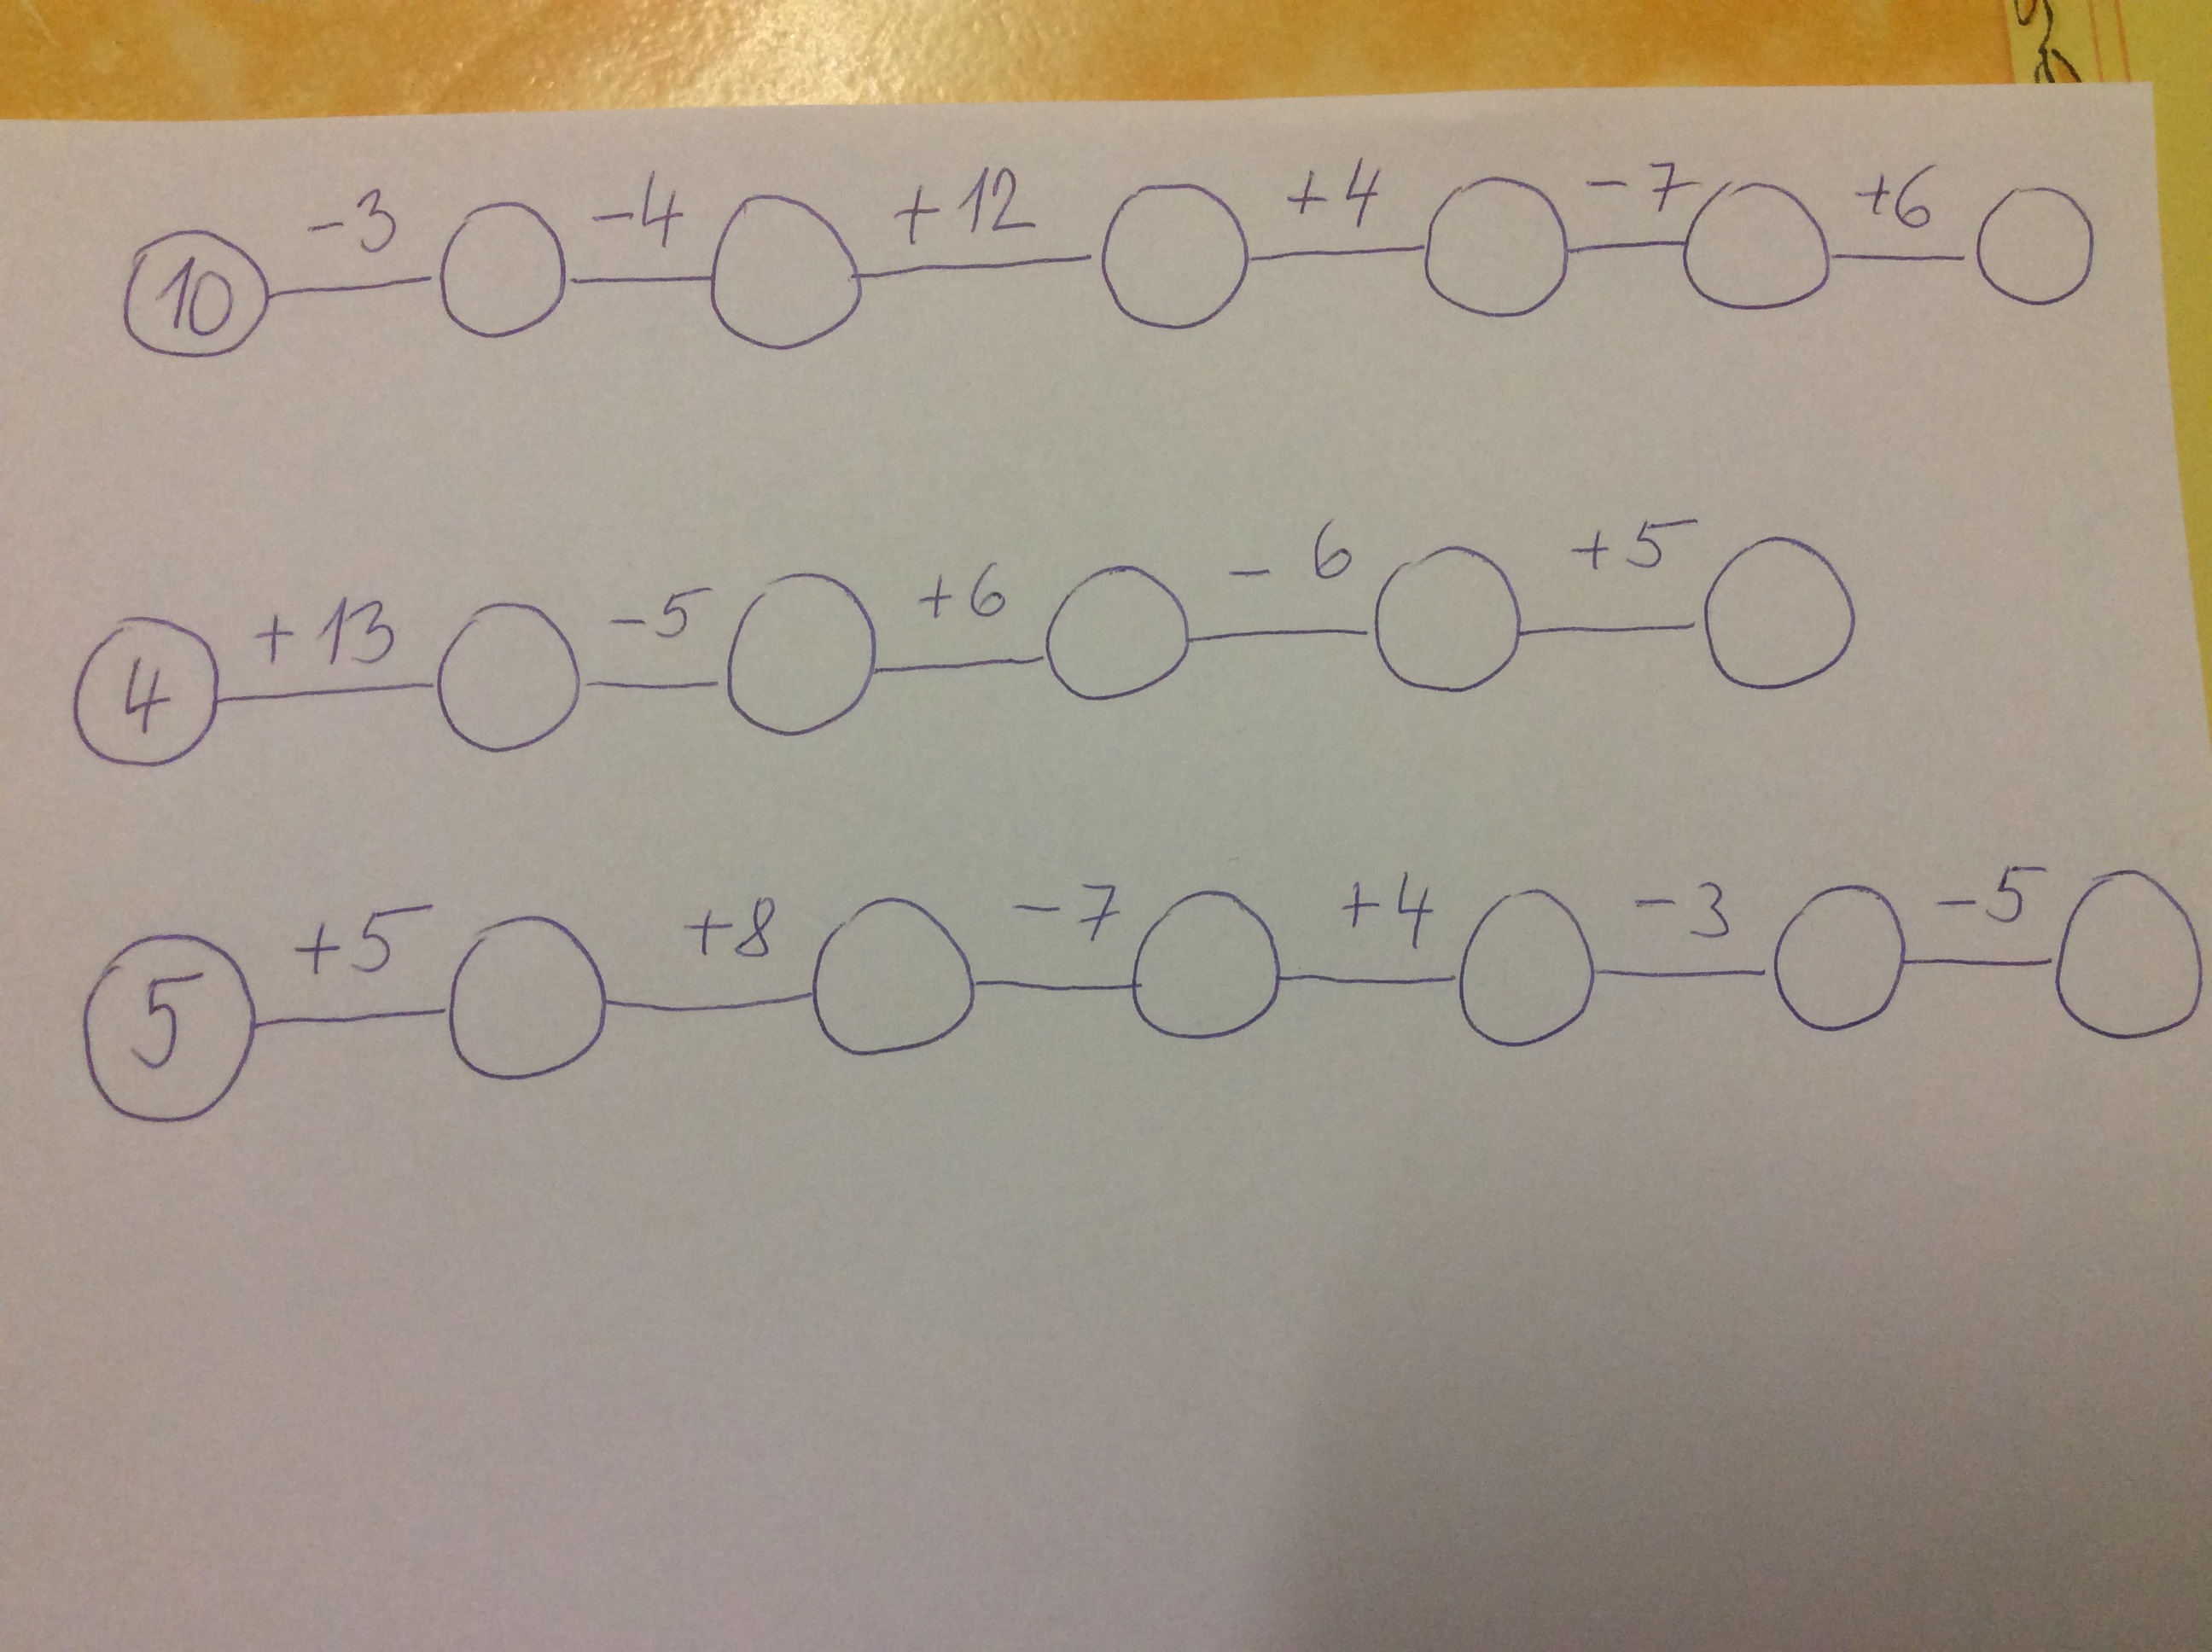 10 -3 -4 +12 +4 -7 +6
4 +13 -5 +6 -6 +5
5 +5 +8 -7 +4 -3 -5